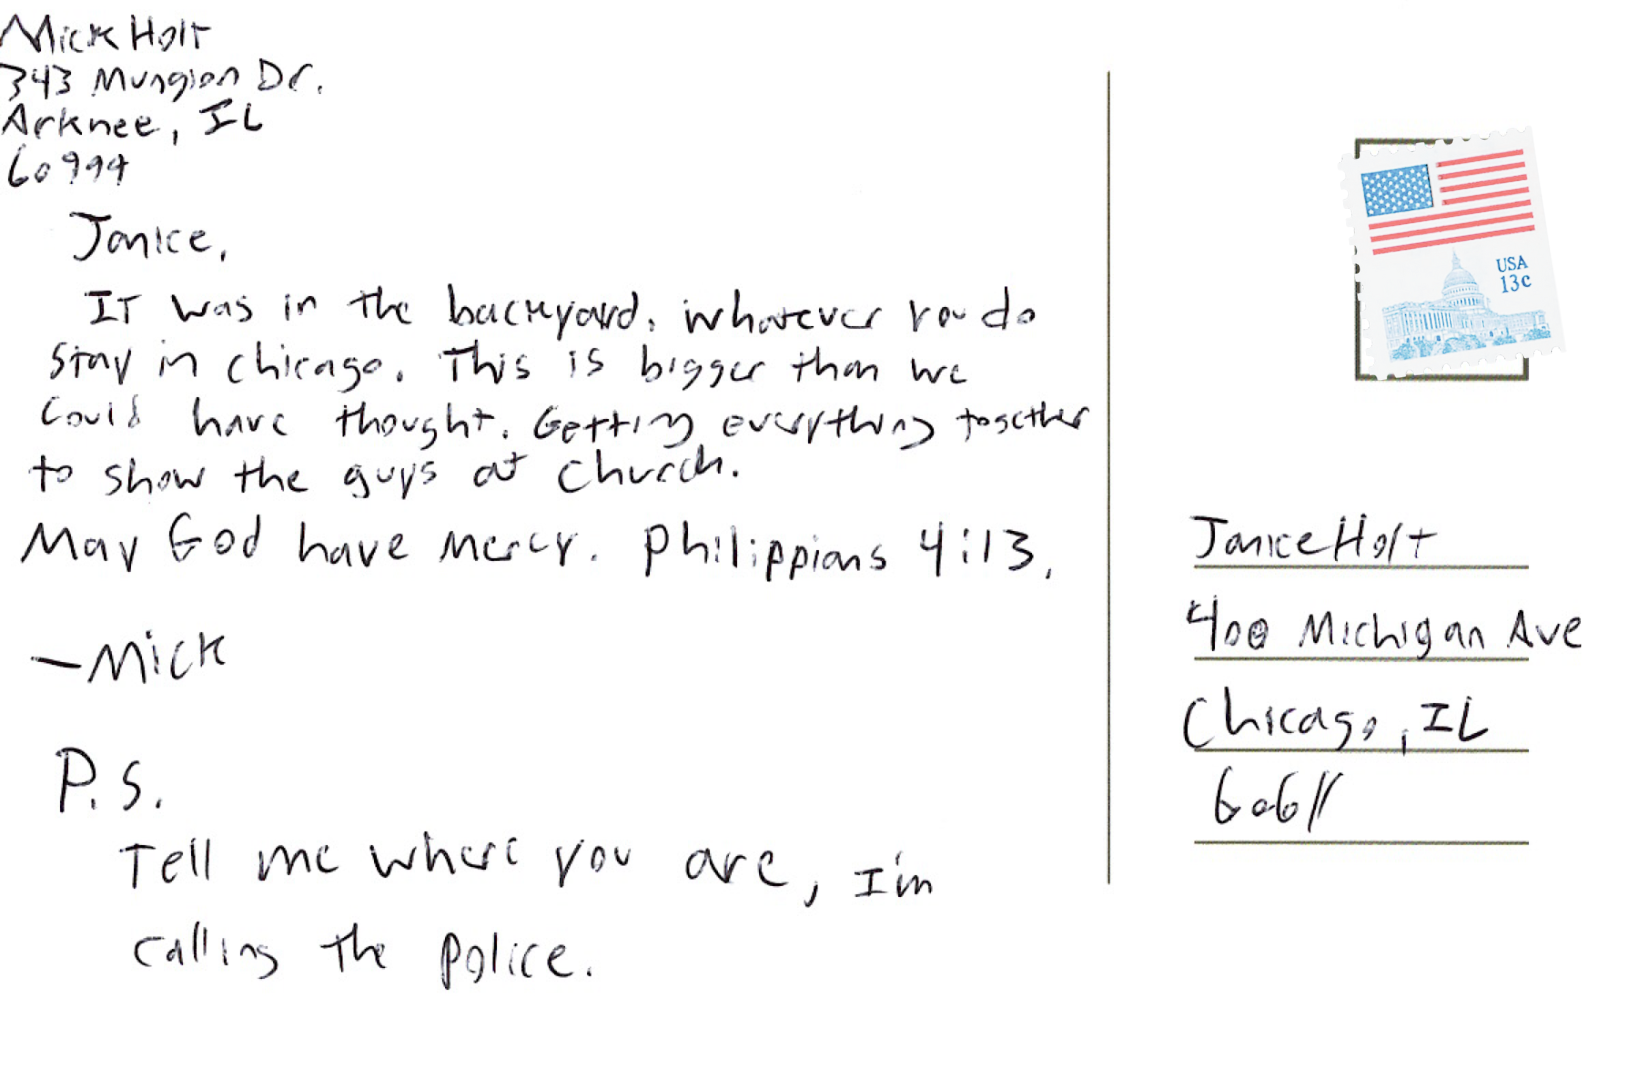 Mick Holt
343 Mungion Dr.
Arknee, IL
60994
Janice,
It was in the backyard. whatever you do
stay in chicago. This is bigger than we
could have thought. Getting everything together
to show the guys at church.
May God have mercy. Philippians 4:13.
—Mick
P.S.
Tell me where you are, I'm
calling the police.
USA
13c
Janice Holt
400 Michigan Ave
Chicago, IL
60611